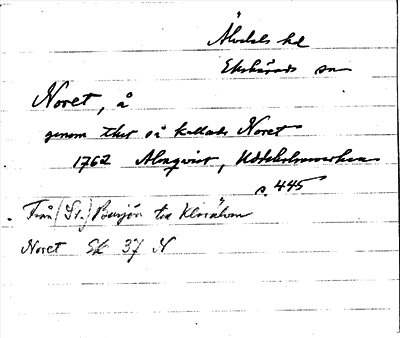 Älvdals hd
Ekshärads sn
Noret, å
genom ther så kallade Noret
1762 Almqvist, Uddeholmsverken
s. 445
Från (St.) Bursjön till Klarälven
Noret Sk 37 N